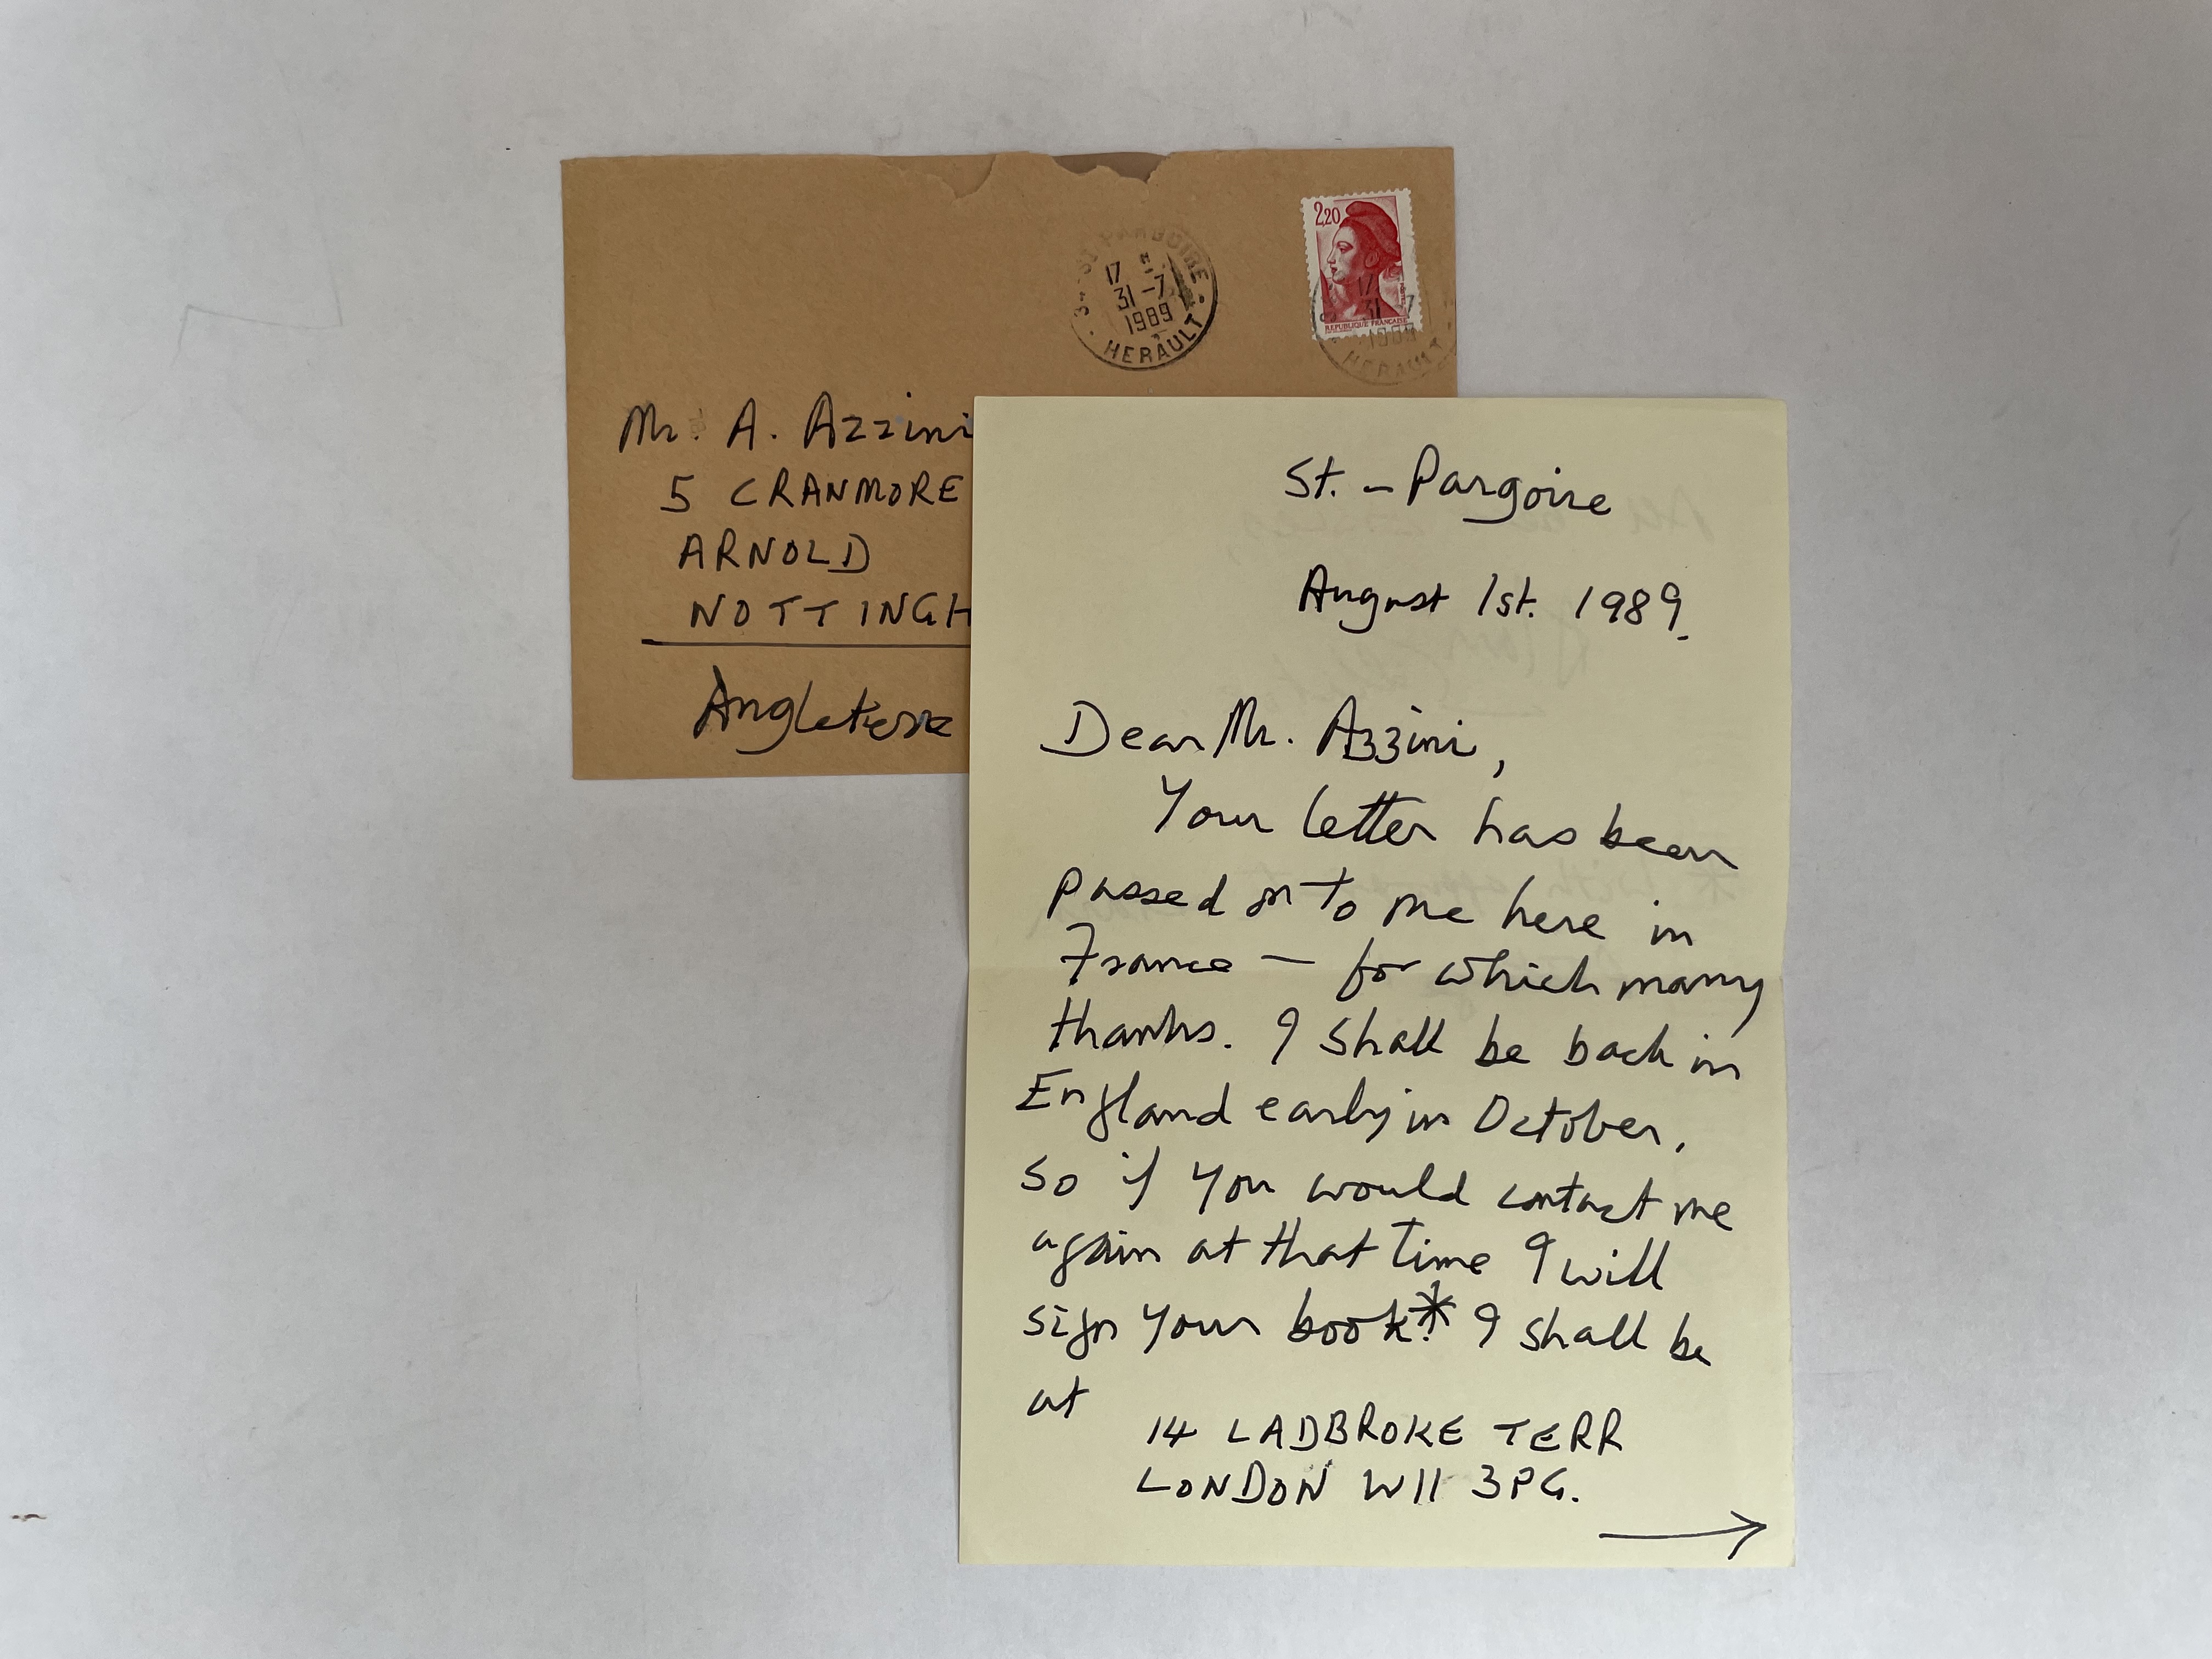 ST PARGOIRE
17
31-7
1989
HERAULT
2,20
REPUBLIQUE FRANÇAISE
17
31 7
HERAULT
Mr. A. Azzini
5 CRANMORE
ARNOLD
NOTTINGH
Angleterre
St. - Pargoire
August 1st. 1989.
Dear Mr. Azzini,
Your letter has been
passed on to me here in
France – for which many
thanks. I shall be back in
England early in October,
so if you would contact me
again at that time I will
sign your book*. I shall be
at
14 LADBROKE TERR
LONDON W11 3PG.
→